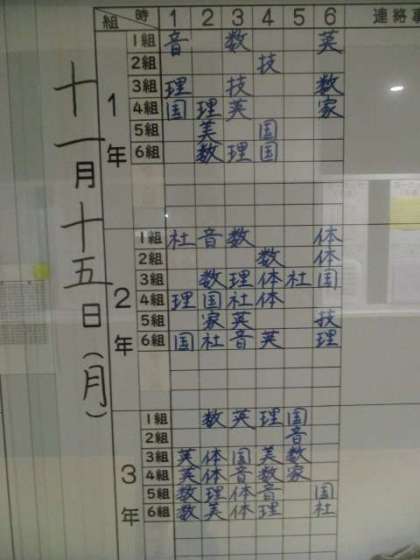 組 時 1 2 3 4 5 6 連絡事
十一月十五日(月)
1年
1組 音 数 英
2組 技
3組 理 技 数
4組 国 理 英 家
5組 美 国
6組 数 理 国
2年
1組 社 音 数 体
2組 数 体
3組 数 理 体 社 国
4組 理 国 社 体
5組 家 英 技
6組 国 社 音 英 理
3年
1組 数 英 理 国
2組 音
3組 英 体 国 美 数
4組 英 体 音 数 家
5組 数 理 体 音 国
6組 数 美 体 理 社